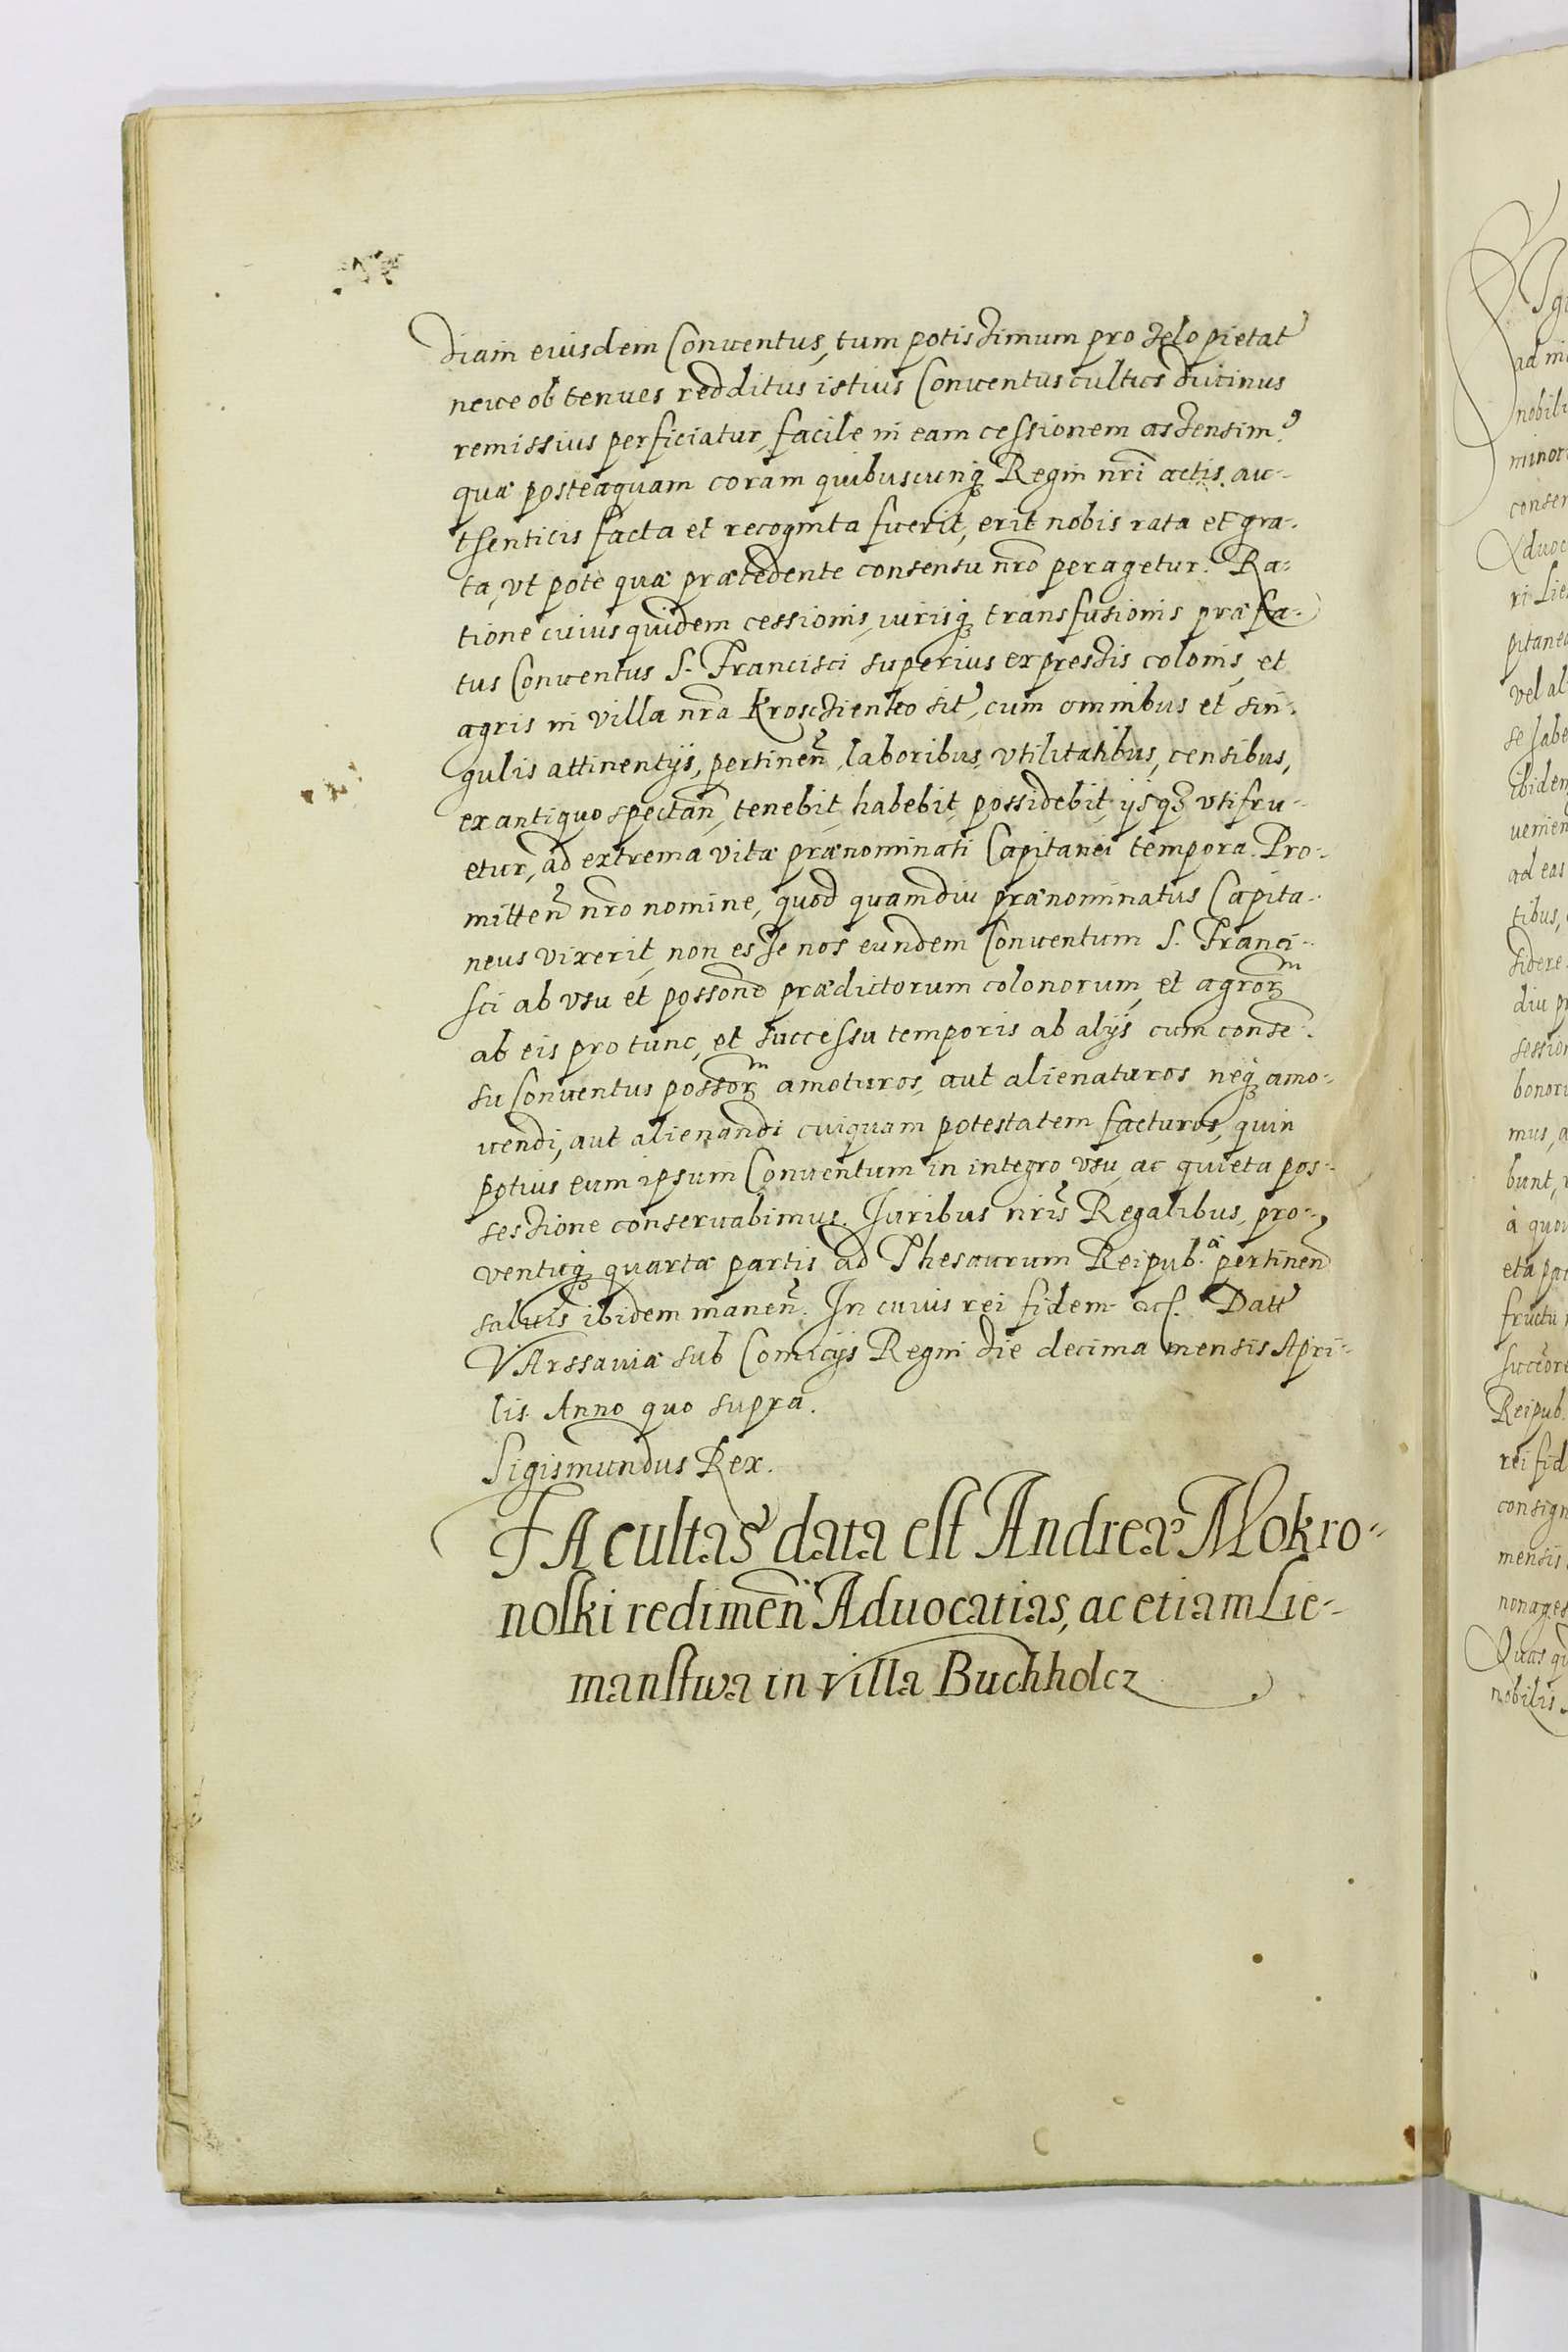 diam eiusdem Conuentus, tum potissimum pro zelo pietat
neue ob tenues redditus istius Conuentus cultus diuinus
remissius perficiatur, facile in eam cessionem assensim9
quæ posteaquam coram quibuscunq Regni nri actis au-
thenticis facta et recognita fuerit, erit nobis rata et gra-
ta, vt pote quæ præcedente consensu nro peragetur. Ra-
tione cuius quidem cessionis, iurisq transfusionis præfa-
tus Conuentus S. Francisci superius expressis colonis, et
agris in villa nra Krosczienko sit, cum omnibus et sin-
gulis attinentijs, pertinen, laboribus, vtilitatibus, censibus,
ex antiquo spectan, tenebit, habebit, possidebit, ijsq3 vtifru-
etur, ad extrema vitæ prænominati Capitanei tempora. Pro-
mitten nro nomine, quod quamdiu prænominatus Capita-
neus vixerit, non esse nos eundem Conuentum S. Franci-
sci ab vsu et possone prædictorum colonorum, et agrorm
ab eis pro tunc, et successu temporis ab alijs cum conse-
su Conuentus possorm amoturos, aut alienaturos neq amo-
uendi, aut alienandi cuiquam potestatem facturos, quin
potius eum ipsum Conuentum in integro vsu, ac quieta pos-
sessione conseruabimus. Juribus nris Regalibus, pro-
ventuq quartæ partis ad Thesaurum Reipub. pertinen
saluis ibidem manen. In cuius rei fidem ac. Datt
VArssauiæ sub Comicijs Regni die decima mensis Apri-
lis Anno quo supra.
Sigismundus Rex.
FAcultas data est Andreæ Mokro-
noski redimen Aduocatias, ac etiam Lie-
manstwa in villa Buchholcz